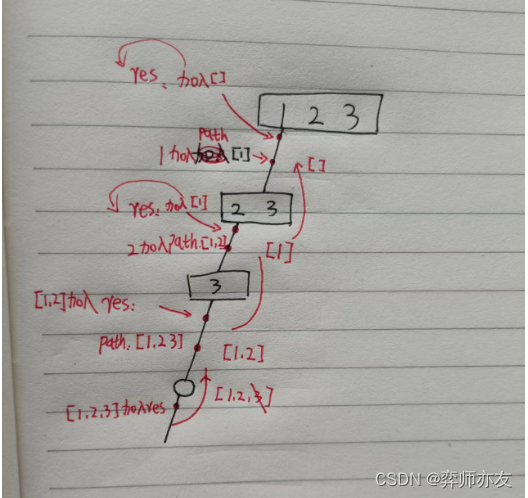 yes: 加入[]
1 2 3
path
1加入 [1]
[]
yes: 加入[1]
2 3
2加入path:[1,2]
[1]
3
[1,2]加入 yes:
path: [1,2,3]
[1,2]
[1,2,3]
[1,2,3]加入yes
CSDN @弈师亦友